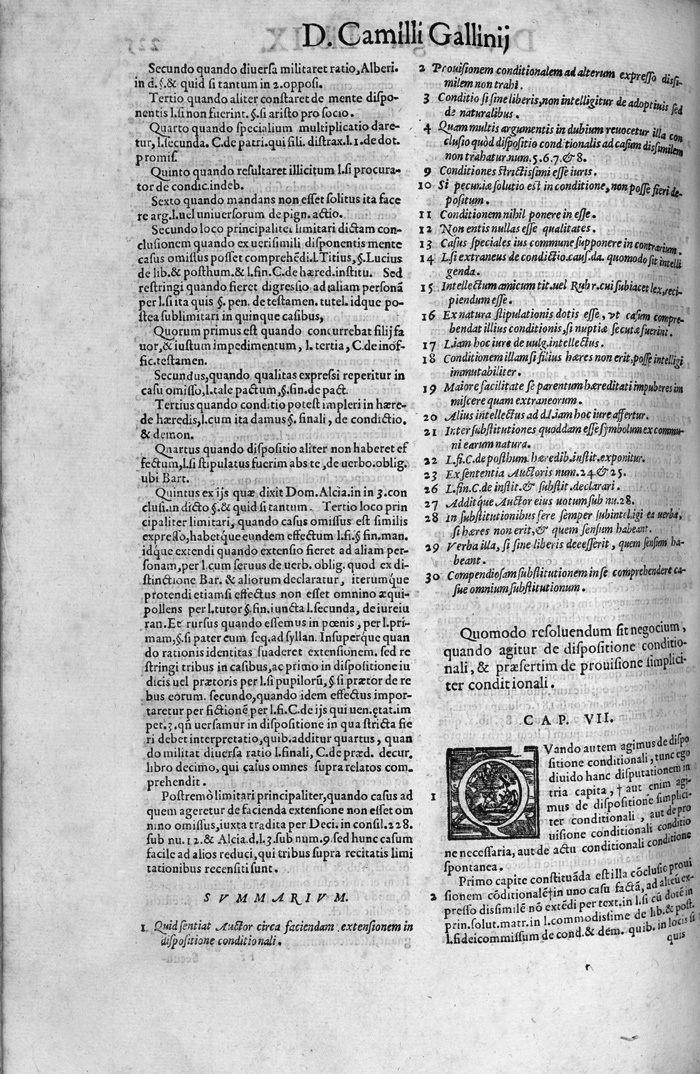 D. Camilli Gallinij
Secundo quando diuersa militaret ratio, Alberi.
in d. §. & quid si tantum in 2. opposi.
Tertio quando aliter constaret de mente dispo-
nentis l. si non fuerint. §. si aristo pro socio.
Quarto quando specialium multiplicatio dare-
tur, l. secunda. C. de patri. qui fili. distrax. l. 1. de dot.
promis.
Quinto quando resultaret illicitum l. si procura-
tor de condic. indeb.
Sexto quando mandans non esset solitus ita face
re arg. l. uel uniuersorum de pign. actio.
Secundo loco principaliter limitari dictam con-
clusionem quando ex uerisimili disponentis mente
casus omissus posset comprehēdi. l. Titius, §. Lucius
de lib. & posthum. & l. fin. C. de hæred. institu. Sed
restringi quando fieret digressio ad aliam personā
per l. si ita quis §. pen. de testamen. tutel. idque po-
stea sublimitari in quinque casibus,
Quorum primus est quando concurrebat filij fa
uor, & iustum impedimentum, l. tertia, C. de inof-
fic. testamen.
Secundus, quando qualitas expressi reperitur in
casu omisso, l. tale pactum, §. fin. de pact.
Tertius quando conditio potest impleri in hære-
de hæredis, l. cum ita damus §. finali, de condictio.
& demon.
Quartus quando dispositio aliter non haberet ef
fectum, l. si stipulatus fuerim abs te, de uerbo. oblig.
ubi Bart.
Quintus ex ijs quæ dixit Dom. Alcia. in in 3. con
clusi. in dicto §. & quid si tantum. Tertio loco prin
cipaliter limitari, quando casus omissus est similis
expresso, habetque eundem effectum l. si §. fin. man.
idque extendi quando extensio fieret ad aliam per-
sonam, per l. cum seruus de uerb. oblig. quod ex di-
stinctione Bar. & aliorum declaratur, iterumque
protendi etiamsi effectus non esset omnino æqui-
pollens per l. tutor §. fin. iuncta l. secunda, de iureiu
ran. Et rursus quando essemus in pœnis, per l. pri-
mam, §. si pater cum seq. ad syllan. Insuperque quan
do rationis identitas suaderet extensionem. sed re
stringi tribus in casibus, ac primo in dispositione iu
dicis uel prætoris per l. si pupilorū, §. si prætor de re
bus eorum. secundo, quando idem effectus impor-
taretur per fictionē per l. fi. C. de ijs qui uen. ętat. im
pet. 3. qñ uersamur in dispositione in qua stricta fie
ri debet interpretatio, quib. additur quartus, quan
do militat diuersa ratio l. finali, C. de præd. decur.
libro decimo, qui casus omnes supra relatos com-
prehendit.
Postremò limitari principaliter, quando casus ad
quem ageretur de facienda extensione non esset om
nino omissus, iuxta tradita per Deci. in consil. 228.
sub nu. 12. & Alcia. d. l. 3. sub num. 9. sed hunc casum
facile ad alios reduci, qui tribus supra recitatis limi
tationibus recensiti sunt.
SVMMARIVM.
1 Quid sentiat Auctor circa faciendam extensionem in
dispositione conditionali.
2 Prouisionem conditionalem ad alterum expresso dissi-
milem non trahi.
3 Conditio si sine liberis, non intelligitur de adoptiuis sed
de naturalibus.
4 Quam multis argumentis in dubium reuocetur illa con
clusio quòd dispositio conditionalis ad casum dissimilem
non trahatur num. 5. 6. 7. & 8.
9 Conditiones strictissimi esse iuris.
10 Si pecuniæ solutio est in conditione, non posse fieri de-
positum.
11 Conditionem nihil ponere in esse.
12 Non entis nullas esse qualitates.
13 Casus speciales ius commune supponere in contrarium.
14 L. si extraneus de condictio. caus. da. quomodo sit intelli
genda.
15 Intellectum amicum tit. uel Rubr. cui subiacet lex, reci-
piendum esse.
16 Ex natura stipulationis dotis esse, vt casum compre-
hendat illius conditionis, si nuptiæ secutæ fuerint.
17 L. iam hoc iure de uulg. intellectus.
18 Conditionem illam si filius hæres non erit, posse intelligi
immutabiliter.
19 Maiore facilitate se parentum hæreditati impuberes im
miscere quam extraneorum.
20 Alius intellectus ad d. l. iam hoc iure affertur.
21 Inter substitutiones quoddam esse symbolum ex commu-
ni earum natura.
22 L. fi. C. de posthum. hæredib. instit. exponitur.
23 Ex sententia Auctoris num. 24. & 25.
26 L. fin. C. de instit. & substit. declarari.
27 Additque Auctor eius uotum sub nu. 28.
28 In substitutionibus fere semper subintelligi ea uerba,
si hæres non erit, & quem sensum habeant.
29 Verba illa, si sine liberis decesserit, quem sensum ha-
beant.
30 Compendiosam substitutionem in se comprehendere ca-
sus omnium substitutionum.
Quomodo resoluendum sit negocium,
quando agitur de dispositione conditio-
nali, & præsertim de prouisione simplici-
ter conditionali.
CAP. VII.
QVando autem agimus de dispo
sitione conditionali, tunc ego
diuido hanc disputationem in
tria capita, † aut enim agi-
1 mus de dispositione simplici-
ter conditionali, aut de pro
uisione conditionali conditio
ne necessaria, aut de actu conditionali conditione
spontanea.
Primo capite constituēda est illa cōclusio proui
2 sionem cōditionalē † in uno casu factā, ad alterū ex-
presso dissimilē nō extēdi per text. in l. si cū dotē in
prin. solut. matr. in l. commodissime de lib. & post.
l. fideicommissum de cond. & dem. quib. in locis si
quis